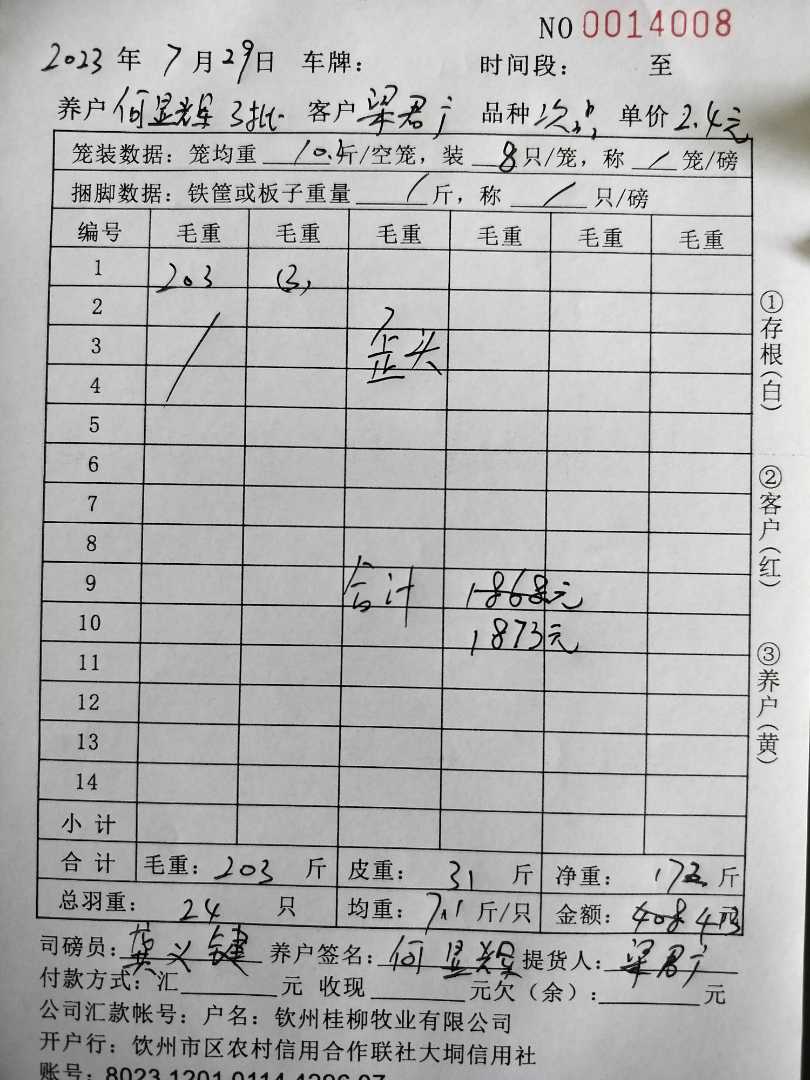 NO 0014008
2023 年 7 月 29 日 车牌： 时间段： 至
养户 何显辉 3批 客户 梁君广 品种 次品 单价 2.4元
笼装数据：笼均重 10.5 斤/空笼，装 8 只/笼，称 / 笼/磅
捆脚数据：铁筐或板子重量 / 斤，称 / 只/磅
编号 毛重 毛重 毛重 毛重 毛重 毛重
1 203 (3)
2
3 歪头
4
5
6
7
8
9 合计 1868元
10 1873元
11
12
13
14
小 计
合 计 毛重：203 斤 皮重：31 斤 净重：172 斤
总羽重：24 只 均重：7.1 斤/只 金额：
司磅员： 义健 养户签名：何显辉 提货人：梁君广
付款方式：汇 元 收现 元欠（余）： 元
公司汇款帐号：户名：钦州桂柳牧业有限公司
开户行：钦州市区农村信用合作联社大垌信用社
账号：8023 1201 0114 4296 07
①存根（白）
②客户（红）
③养户（黄）